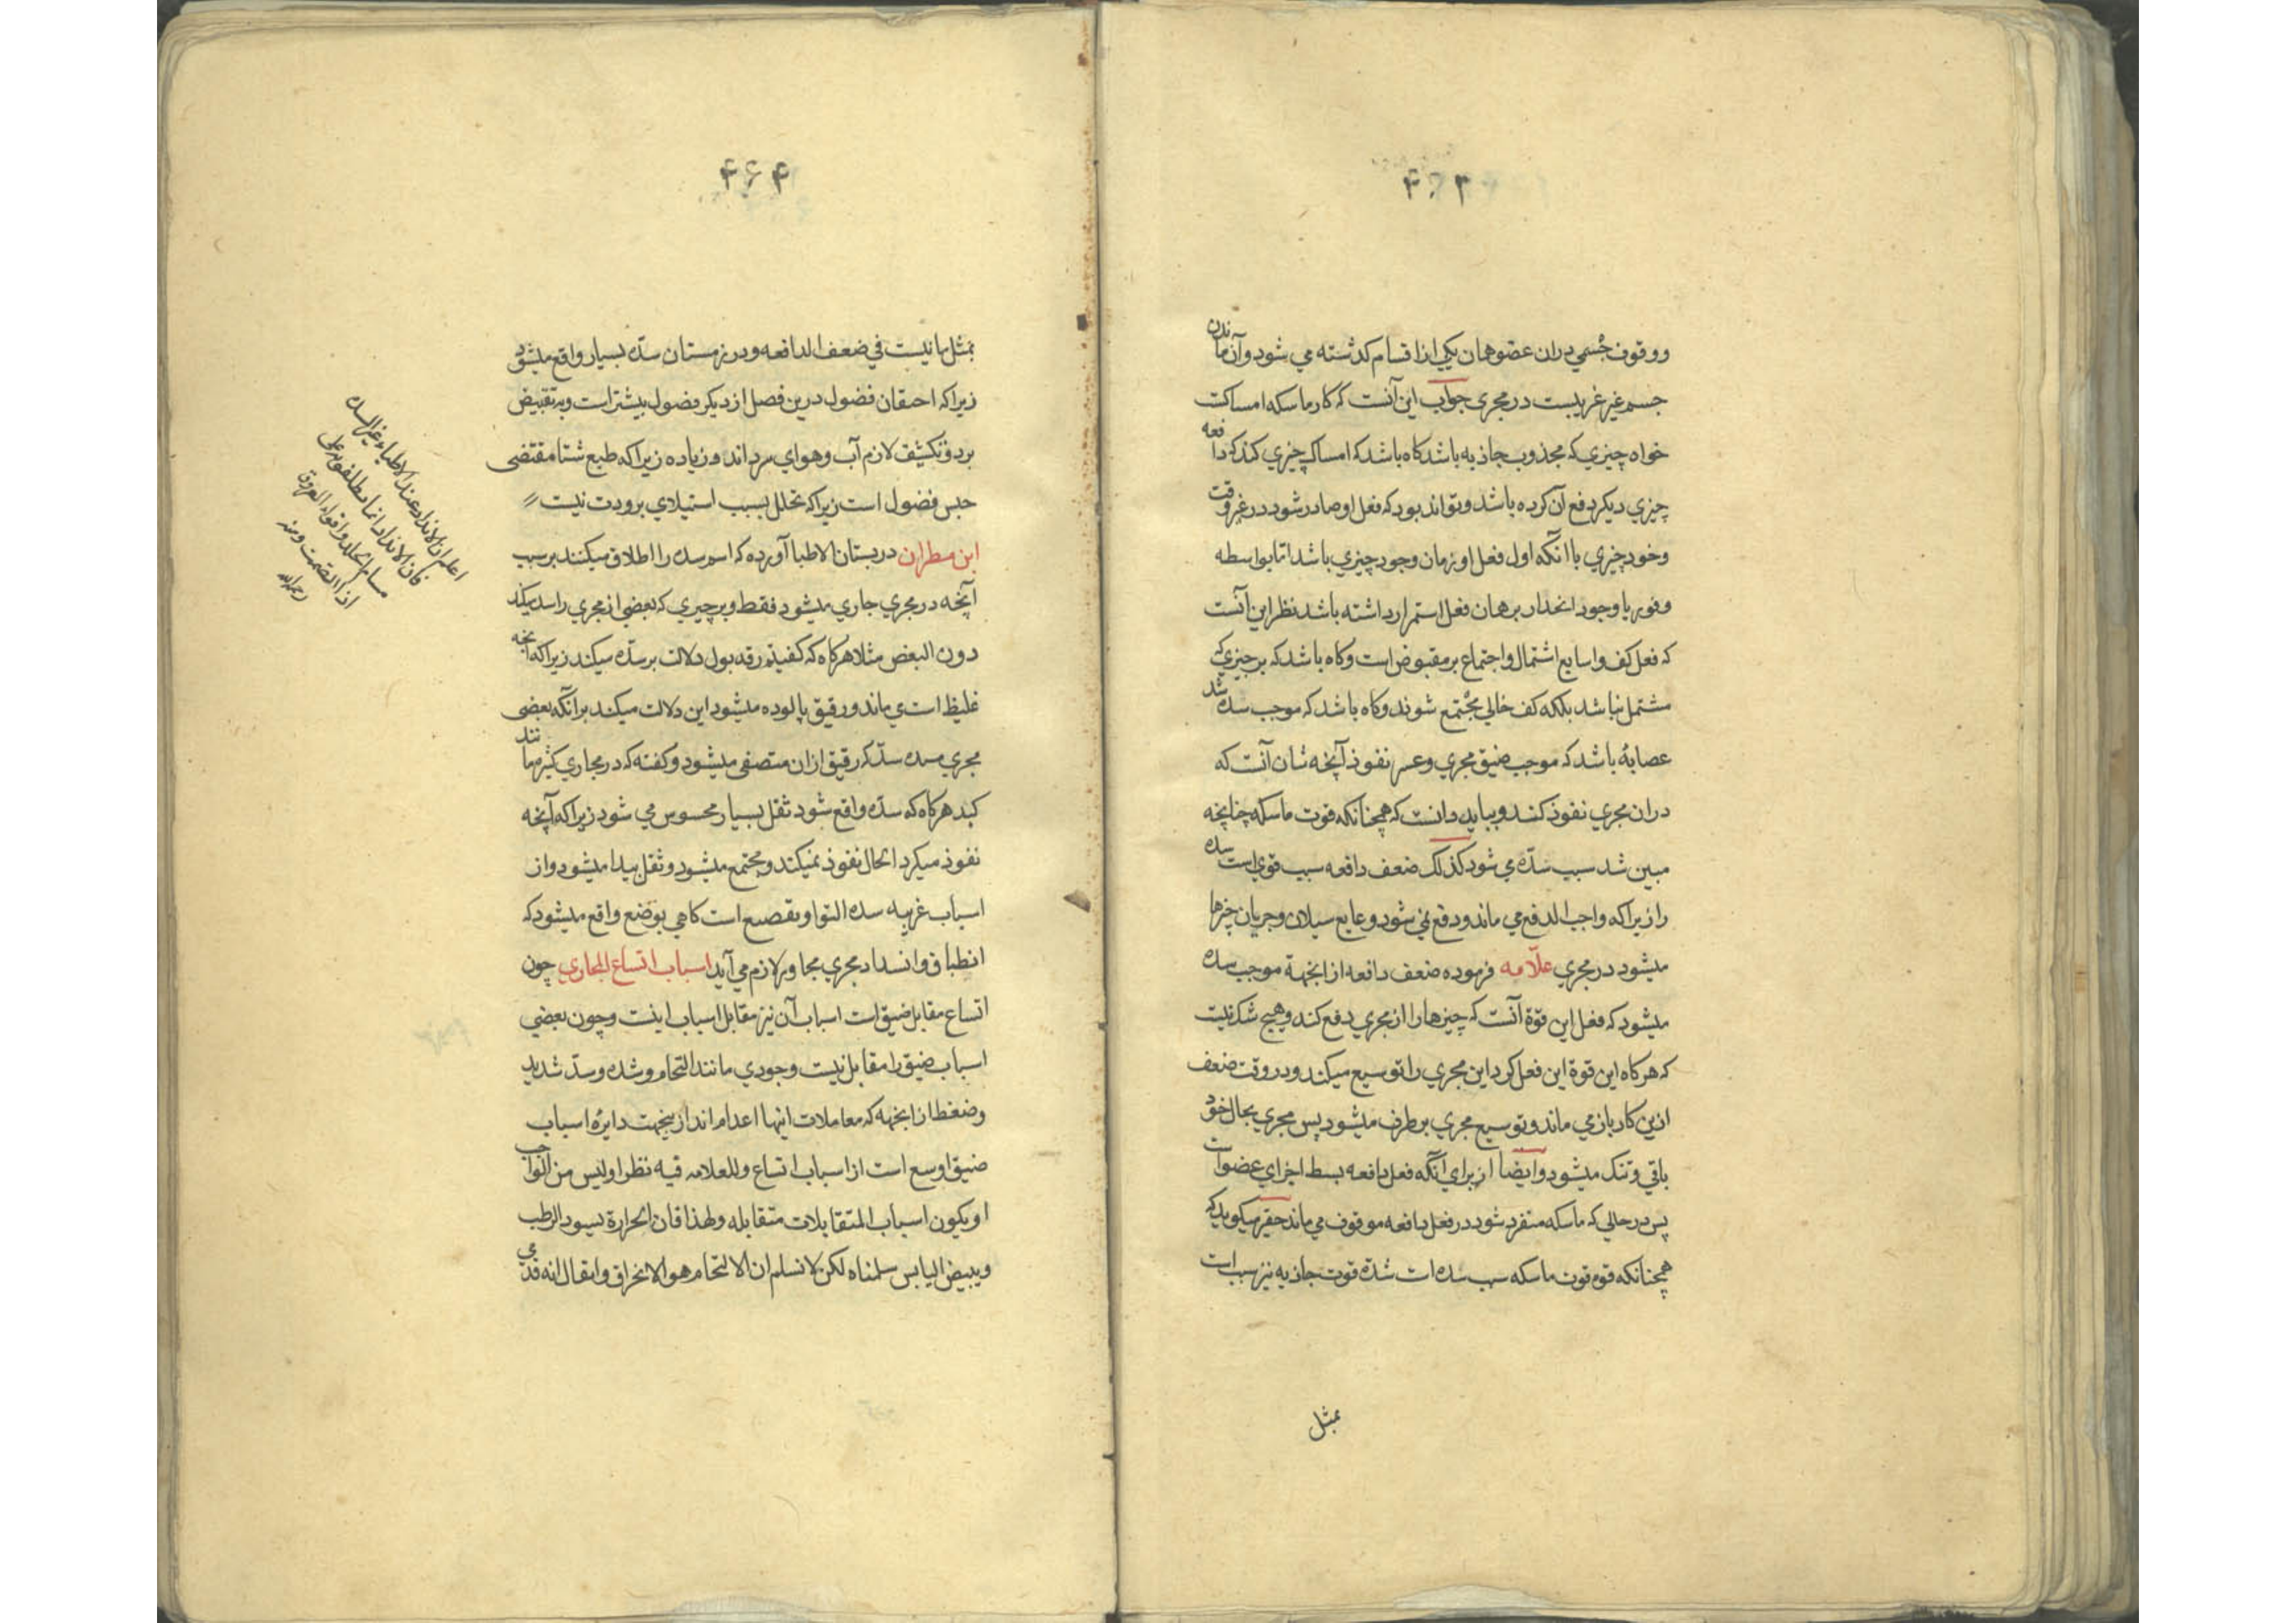 ۴۶۳
ووقوف جسمي دران عضو همان يكي از اقسام كذشته مي شود وآن ماندن
جسم غير غريبست در مجرى جواب اين آنست كه كار ماسكه امساكست
خواه چيزي كه مجذوب جاذبه باشد كاه باشد كه امساك چيزي كند كه دافعه
چيزي ديكر دفع آن كرده باشد وتواند بود كه فعل او صادر شود در غير وقت
وخود چيزي با آنكه اول فعل او زمان وجود چيزي باشد اما بواسطه
وفور يا وجود انحدار بر همان فعل استمرار داشته باشد نظر اين آنست
كه فعل كف واسابع اشتمال واجتماع بر مقبوض است وكاه باشد كه بر چيزي كه
مشتمل نباشد بلكه كف خالي مجتمع شوند وكاه باشد كه موجب سده شد
عصابهٔ باشد كه موجب ضيق مجرى وعسر نفوذ آنچه شان آنست كه
دران مجري نفوذ كند وببايد دانست كه همچنانكه قوت ماسكه چنانچه
مبين شد سبب سدّه مي شود كذلك ضعف دافعه سبب قوي است سده
را زيراكه واجب الدفع مي ماند ودفع نمي شود ومايع سيلان وجريان چيزها
ميشود در مجري علّامه فرموده ضعف دافعه از انجهة موجب سده
ميشود كه فعل اين قوة آنست كه چيزها را از مجري دفع كند وهيچ شك نيست
كه هركاه اين قوة اين فعل كرد اين مجري را توسيع ميكند ودر وقت ضعف
ازين كار باز مي ماند وتوسيع مجري بر طرف ميشود پس مجري بحال خود
باقي وتنك ميشود وايضا از براي آنكه فعل دافعه بسط اجزاي عضو است
پس در حالي كه ماسكه متفرد شود در فعل دافعه موقوف مي ماند حقير ميكويد كه
همچنانكه قوه قوت ماسكه سبب سده است شدّة قوت جاذبه نيز سبب است
بمثل
۴۶۴
بمثل ما نيست في ضعف الدافعه ودر زمستان سدّه بسيار واقع ميشود
زيراكه احتقان فضول درين فصل از ديكر فصول بيشتر است وبه تقبيض
برد وتكثيف لازم آب وهواي سرد اند وزياده زيراكه طبع شتا مقتضى
حبس فضول است زيراكه تحلل بسبب استيلادي برودت نيست
ابن مطران در بستان الاطبا آورده كه اسم سده را اطلاق ميكنند بر سبب
آنچه در مجري جاري ميشود فقط وبر چيري كه بعضي از مجري را سد ميكند
دون البعض مثلا هركاه كه كفيتم رقه بول دلالت بر سدّه ميكند زيراكه آنچه
غليظ است ي ماند ورقيق پالوده ميشود اين دلالت ميكند بر آنكه بعضى
مجري سده سدّ كه رقيق ازان متصفى ميشود وكفته كه در مجاري كثير مانند
كبد هركاه كه سدّه واقع شود ثقل بسيار محسوس مي شود زيراكه آنچه
نفوذ ميكرد الحال نفوذ نميكند ومجتمع ميشود وثقل پيدا ميشود واز
اسباب غريبه سده التوا وتقصيع است كاهي بوضع واقع ميشود كه
انطباق وانسداد مجري مجاور لازم مي آيد اسباب اتساع المجاري چون
اتساع مقابل ضيق است اسباب آن نيز مقابل اسباب اينست وچون بعضي
اسباب ضيق را مقابل نيست وجودي مانند التحام وشده وسدّ شديد
وضغط از انجهه كه معاملات اينها اعدام اند ازينجهت دايرهٔ اسباب
ضيق اوسع است از اسباب اتساع وللعلامه فيه نظر اوليس من الواجب
او يكون اسباب المتقابلات متقابله ولهذا فان الحرارة يسود الرطب
ويبيض اليابس سلمناه لكن لا نسلم ان الالتحام هو الانخراق وايقال انه قد
اعلم ان الانداد عند الاطباء غير السده
فان الانداد انما يطلقونه على
مسام الجلد وافواه العروق
اذا انضمت ومنه
رحمه الله